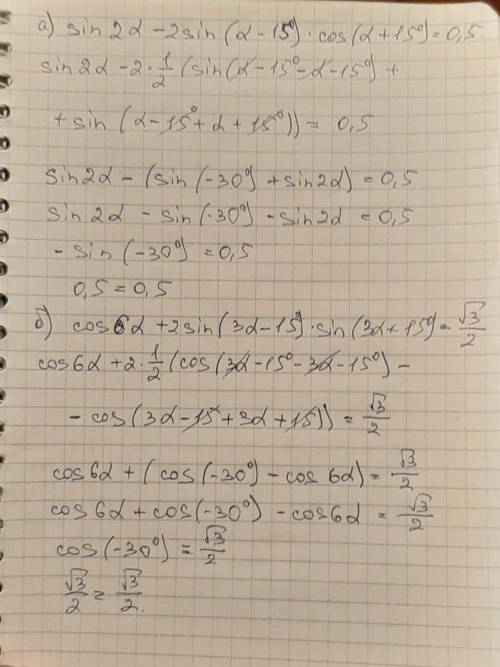 а) sin 2α - 2 sin (α - 15°) · cos (α + 15°) = 0,5
sin 2α - 2 · 1/2 (sin (α - 15° - α - 15°) +
+ sin (α - 15° + α + 15°)) = 0,5
sin 2α - (sin (-30°) + sin 2α) = 0,5
sin 2α - sin (-30°) - sin 2α = 0,5
- sin (-30°) = 0,5
0,5 = 0,5
б) cos 6α + 2 sin (3α - 15°) · sin (3α + 15°) = √3/2
cos 6α + 2 · 1/2 (cos (3α - 15° - 3α - 15°) -
- cos (3α - 15 + 3α + 15)) = √3/2
cos 6α + (cos (-30°) - cos 6α) = √3/2
cos 6α + cos (-30°) - cos 6α = √3/2
cos (-30°) = √3/2
√3/2 = √3/2.